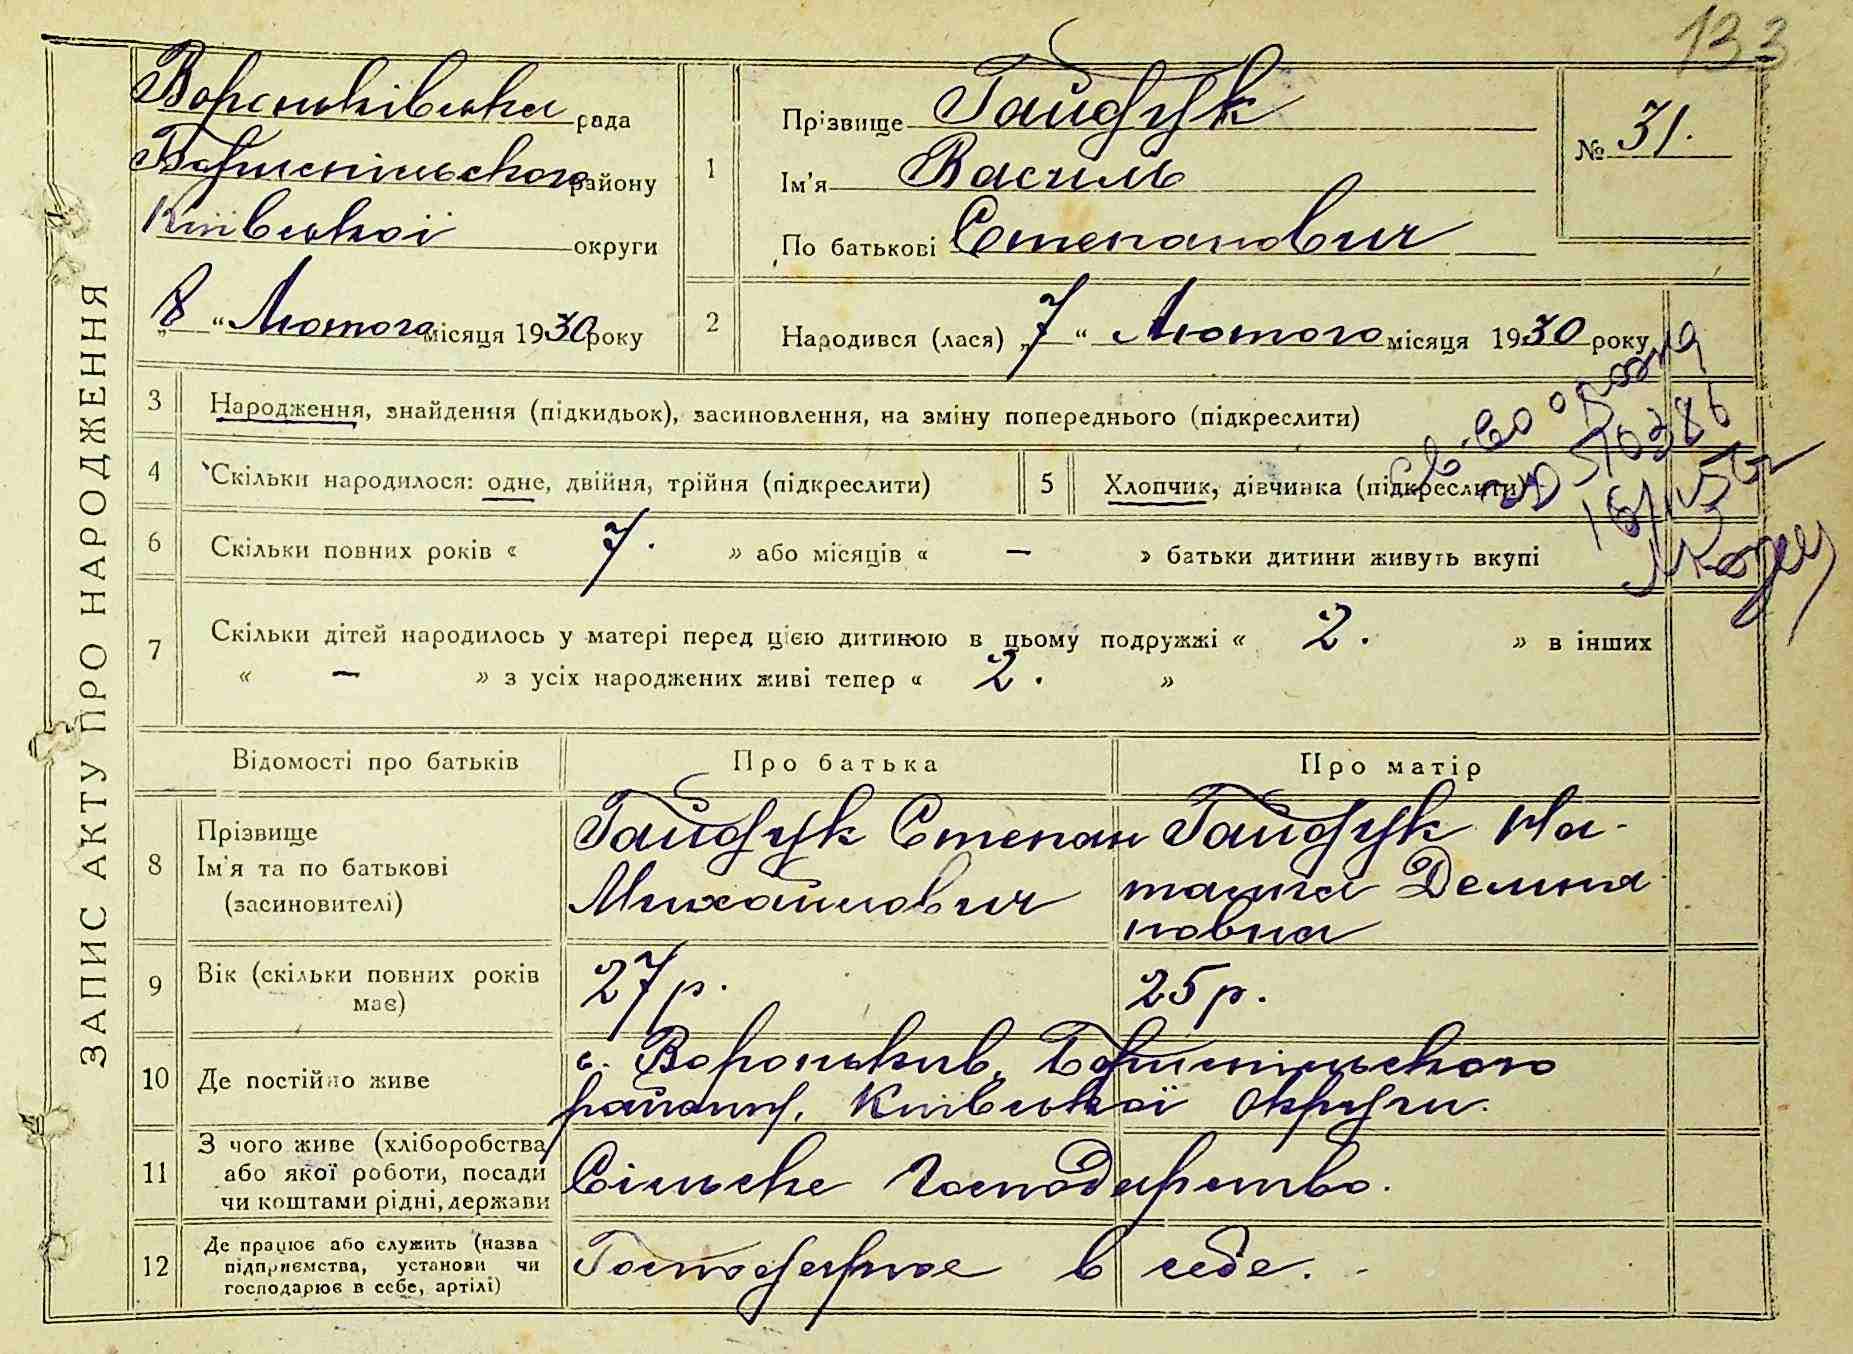 133
ЗАПИС АКТУ ПРО НАРОДЖЕННЯ
Вороньківська рада
Бориспільського району
Київської округи
„8“ Лютого місяця 1930 року
1
Прізвище Гайдук
Ім'я Василь
По батькові Степанович
№ 31.
2
Народився (лася) „7“ Лютого місяця 1930 року
3 Народження, знайдення (підкидьок), засиновлення, на зміну попереднього (підкреслити)
4 Скільки народилося: одне, двійня, трійня (підкреслити)
5 Хлопчик, дівчинка (підкреслити)
6 Скільки повних років « 7. » або місяців « — » батьки дитини живуть вкупі
7 Скільки дітей народилось у матері перед цією дитиною в цьому подружжі « 2. » в інших
« — » з усіх народжених живі тепер « 2. »
Відомості про батьків Про батька Про матір
8 Прізвище
Ім'я та по батькові
(засиновителі)
Гайдук Степан
Михайлович
Гайдук На-
талка Демья
новна
9 Вік (скільки повних років
має)
27 р. 25 р.
10 Де постійно живе
с. Вороньків, Бориспільського
району, Київської Округи.
11 З чого живе (хліборобства
або якої роботи, посади
чи коштами рідні, держави
Сільське Господарство.
12 Де працює або служить (назва
підприємства, установи чи
господарює в себе, артілі)
Господарює в себе.